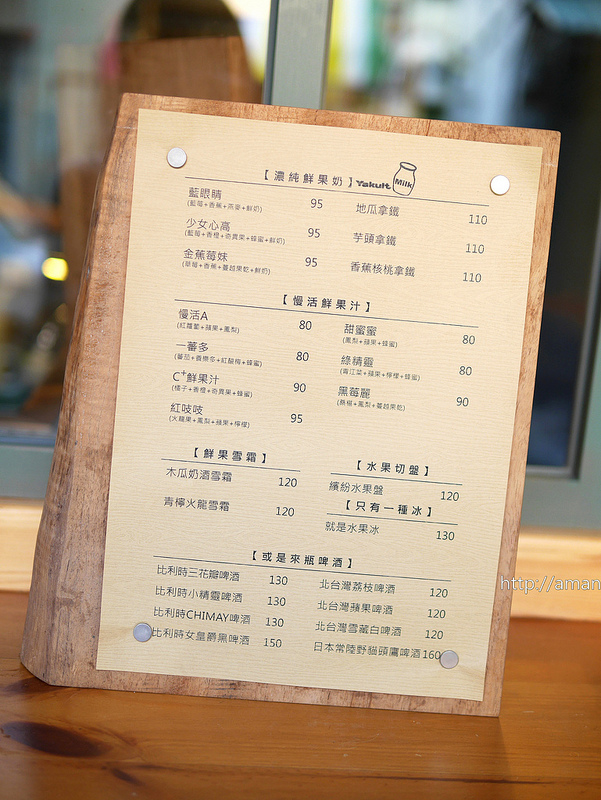 【濃純鮮果奶】Yakult Milk
藍眼睛 95
(藍莓+香蕉+燕麥+鮮奶)
地瓜拿鐵 110
少女心高 95
(藍莓+香橙+奇異果+蜂蜜+鮮奶)
芋頭拿鐵 110
金蕉莓妹 95
(草莓+香蕉+蔓越果乾+鮮奶)
香蕉核桃拿鐵 110
【慢活鮮果汁】
慢活A 80
(紅蘿蔔+蘋果+鳳梨)
甜蜜蜜 80
(鳳梨+蘋果+蜂蜜)
一蕃多 80
(蕃茄+養樂多+紅酸梅+蜂蜜)
綠精靈 80
(青江菜+蘋果+檸檬+蜂蜜)
C+鮮果汁 90
(橘子+香橙+奇異果+蜂蜜)
黑莓麗 90
(桑椹+鳳梨+蔓越果乾)
紅吱吱 95
(火龍果+鳳梨+蘋果+檸檬)
【鮮果雪霜】
木瓜奶酒雪霜 120
青檸火龍雪霜 120
【水果切盤】
繽紛水果盤 120
【只有一種冰】
就是水果冰 130
【或是來瓶啤酒】
比利時三花瓣啤酒 130
北台灣荔枝啤酒 120
比利時小精靈啤酒 130
北台灣蘋果啤酒 120
比利時CHIMAY啤酒 130
北台灣雪藏白啤酒 120
比利時女皇爵黑啤酒 150
日本常陸野貓頭鷹啤酒 160
http://aman